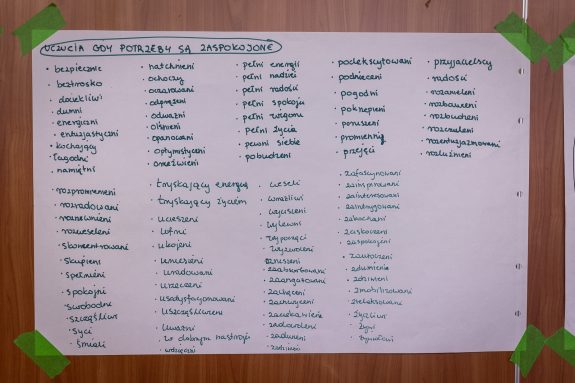 UCZUCIA GDY POTRZEBY SĄ ZASPOKOJONE
• bezpiecznie
• beztrosko
• dociekliwi
• dumni
• energiczni
• entuzjastyczni
• kochający
• łagodni
• namiętni
• natchnieni
• ochoczy
• oczarowani
• odprężeni
• odważni
• olśnieni
• opanowani
• optymistyczni
• orzeźwieni
• pełni energii
• pełni nadziei
• pełni radości
• pełni spokoju
• pełni wigoru
• pełni życia
• pewni siebie
• pobudzeni
• podekscytowani
• podnieceni
• pogodni
• pokrzepieni
• poruszeni
• promienni
• przejęci
• przyjacielscy
• radośni
• rozanieleni
• rozbawieni
• rozbudzeni
• rozczuleni
• rozentuzjazmowani
• rozluźnieni
• rozpromienieni
• rozradowani
• rozrzewnieni
• rozweseleni
• skoncentrowani
• skupieni
• spełnieni
• spokojni
• swobodni
• szczęśliwi
• syci
• śmiali
• tryskający energią
• tryskający życiem
• ucieszeni
• ufni
• ukojeni
• uniesieni
• uradowani
• urzeczeni
• usatysfakcjonowani
• uszczęśliwieni
• uważni
• w dobrym nastroju
• wdzięczni
• weseli
• wrażliwi
• wyciszeni
• wylewni
• wypoczęci
• wyzwoleni
• wzruszeni
• zaabsorbowani
• zaangażowani
• zachęceni
• zachwyceni
• zaciekawieni
• zadowoleni
• zadziwieni
• zafascynowani
• zainspirowani
• zainteresowani
• zaintrygowani
• zakochani
• zaskoczeni
• zaspokojeni
• zauroczeni
• zdumieni
• zdziwieni
• zmobilizowani
• zrelaksowani
• życzliwi
• żywi